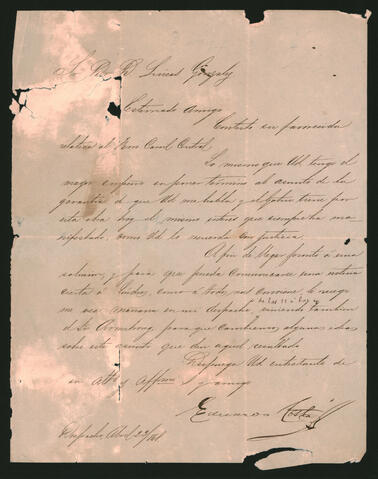 Sr. Dr. D. Lucas González
Estimado Amigo
Contesto su
relativa al Ferro Carril Central.
Lo mismo que Ud. tengo el
mayor empeño en poner término al asunto de la
garantía de que Ud. me habla y el Gobno tiene por
esta obra hoy el mismo interés que siempre ha ma
nifestado, como Ud. lo recuerda con justicia.
A fin de llegar pronto á una
solucion, y para que pueda comunicarse una noticia
cierta á Londres, como á todos nos conviene, le ruego
de las 11 á las
me vea mañana en mi despacho, viniendo tambien
el Sr. Armstrong, para que cambiemos algunas ideas
sobre este asunto que den aquel resultado.
Disponga Ud. entretanto de
su att° y affmo amigo
Eduardo Costa
Despacho, Abril 22/